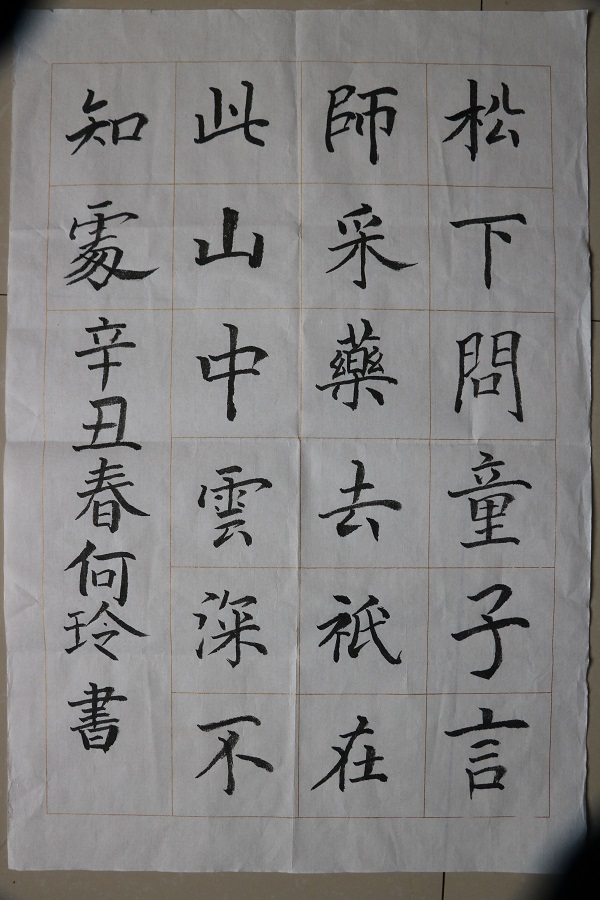 松下問童子言
師采藥去祇在
此山中雲深不
知處辛丑春何玲書